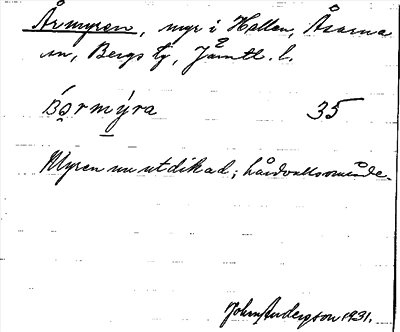 Årmyren, myr i Hallen, Åsarna
sn, Bergs tg, Jämtl. l.
35
Myren nu utdikad; hårdvallsområde.
John Anderzson 1931.